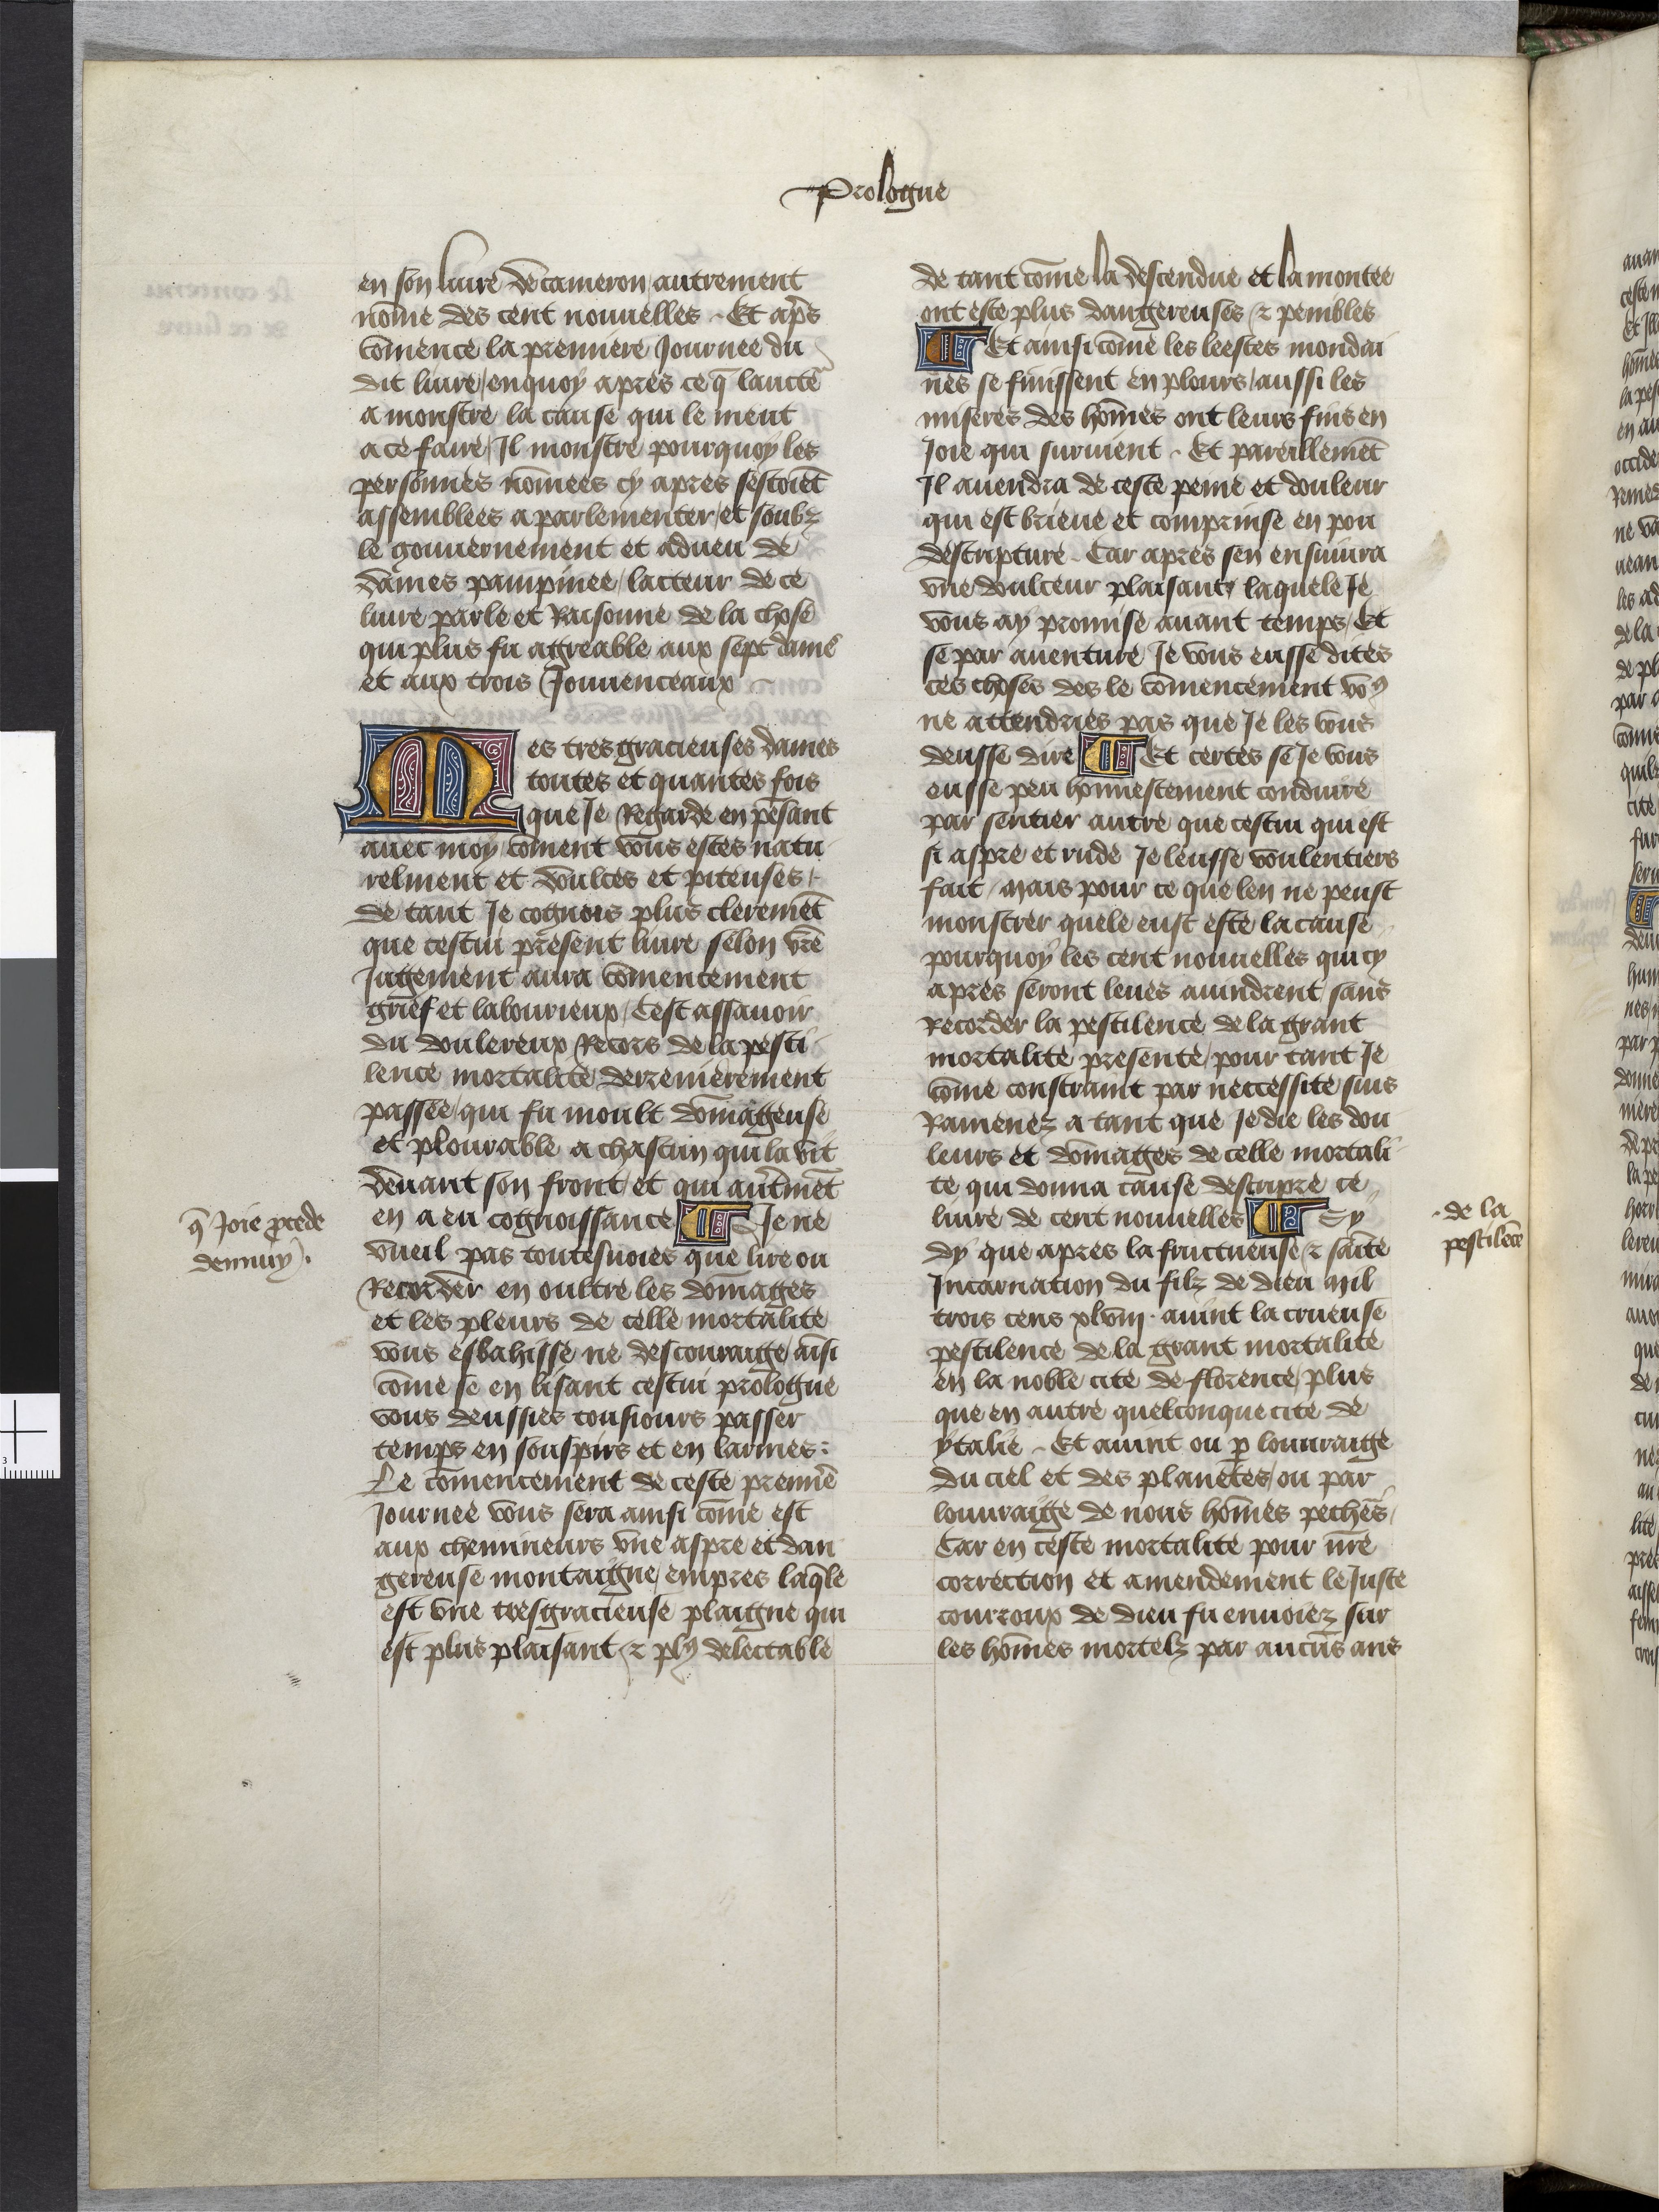 Prologue
en son liure decameron autrement
nōme des cent nouuelles. Et apͤs
cōmence la premiere Journee du
dit liure/ en quoy apres ce q̄ laucte
a monstre la cause qui le meut
a ce faire/ Il monstre pourquoy les
personnes nōmees cy apres sestoiēt
assemblees a parlementer/ et soubz
le gouuernement et adueu de
dames pampinee/ lacteur de ce
liure parle et Raisonne de la chose
qui plus fu aggreable aux sept dames
et aux trois Jouuenceaux
Mes tresgracieuses dames
toutes et quantes fois
que Je Regarde en pēsant
auec moy/ cōment vous estes natu
relment et doulces et piteuses/
de tant Je cognois plus cleremēt
que cestui present liure selon vr̄e
Jugement aura cōmencement
grief et labourieux/ Cest assauoir
du doulereux Recors de la pesti
lence mortalite derrenierement
passee/ qui fu moult dōmageuse
et plourable a chascun qui la vit
deuant son front/ et qui aut̄mēt
en a eu cognoissance ¶ Je ne
vueil pas toutesuoies que lire ou
Recorder en oultre les dōmages
et les pleurs de celle mortalite
vous esbahisse ne descouraige/ aīsi
cōme se en lisant cestui prologue
vous deussies tousiours passer
temps en souspirs et en larmes:
Le cōmencement de ceste premiē
Journee vous sera ainsi cōme est
aux chemineurs vne aspre et dan
gereuse montaigne/ empres laq̄le
est vne tresgracieuse plaigne qui
est plus plaisant ⁊ plꝰ delectable
q̄ Joie ꝓcede
dennuy.
de tant cōme la descendue et la montee
ont este plus dangereuses ⁊ penibles
¶ Et ainsi cōme les leestes mondai
nes se finissent en plours/ aussi les
miseres des hōmes ont leurs fins en
Joie qui suruient. Et pareillemēt
Il auendra de ceste peine et douleur
qui est brieue et comprinse en pou
descripture. Car apres sen ensuiura
vne doulceur plaisant/ laquele Je
vous ay promise auant temps/ Et
se par auenture Je vous eusse dites
ces choses des le cōmencement voꝰ
ne attendries pas que Je les vous
deusse dire ¶ Et certes se Je vous
eusse peu honnestement conduire
par sentier autre que cestui qui est
si aspre et rude Je leusse voulentiers
fait/ Mais pour ce que len ne peust
monstrer quele eust este la cause
pourquoy les cent nouuelles qui cy
apres seront leues auindrent/ sans
Recorder la pestilence de la grant
mortalite presente/ pour tant Je
cōme constraint par neccessite suis
Ramenez a tant que Je die les dou
leurs et dōmages de celle mortali
te qui donna cause descripre ce
liure de cent nouuelles ¶ Cy
dy que apres la fructueuse ⁊ saīte
Incarnation du filz de dieu Mil
trois cens xlviij. auint la crueuse
pestilence de la grant mortalite
en la noble cite de florence/ plus
que en autre quelconque cite de
ytalie. Et auint ou ꝑ louuraige
du ciel et des planetes/ ou par
louuraige de nous hōmes pecheͬs/
Car en ceste mortalite pour nr̄e
correction et amendement le Juste
courroux de dieu fu enuoiez sur
les hōmes mortelz par aucūs ans
de la
pestilēce